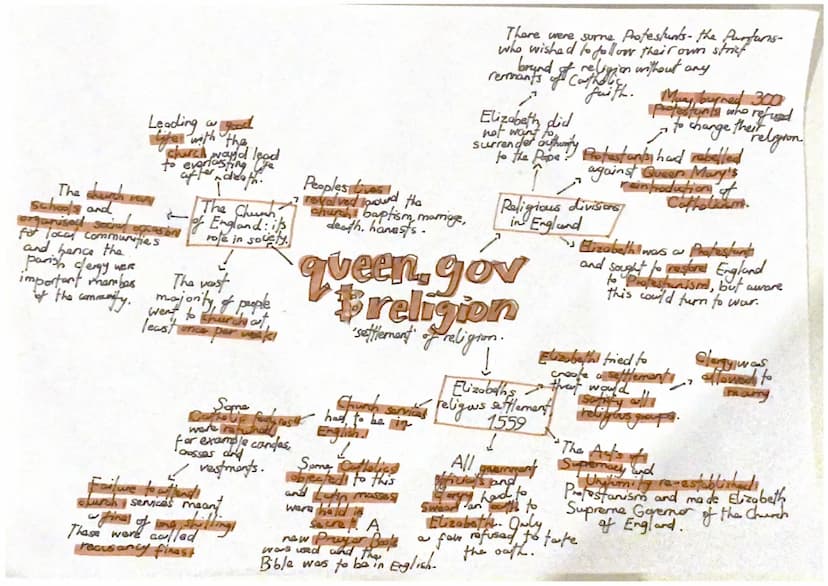 There were some Protestants - the Puritans -
who wished to follow their own strict
brand of religion without any
remnants of Catholic
faith.
Elizabeth did
not want to
surrender authority
to the Pope.
Mary burned 300
protestants who refused
to change their
religion.
Protestants had rebelled
against Queen Mary's
reintroduction of
Catholicism.
Religious divisions
in England
Elizabeth was a Protestant
and sought to restore England
to Protestanism, but aware
this could turn to war.
Leading a good
life with the
church would lead
to everlasting life
after death.
The church ran
schools and
organised social occasion
for local communities
and hence the
parish clergy were
important membas
of the community.
The Church
of England: its
role in society.
Peoples lives
revolved around the
church; baptism, marrige,
death, harvests.
The vast
majority of people
went to church at
least once per week
queen, gov
& religion
'settlement' of religion.
Elizabeths
religius settlement
1559
Elizabeth tried to
create a settlement
that would
satisfy all
religious groups.
Clergy was
allowed to
marry
The Acts of
Supremacy and
Uniformity re-established
Protestanism and made Elizabeth
Supreme Governor of the Church
of England.
All government
officials and
clergy had to
swear an oath to
Elizabeth. Only
a few refused to take
the oath.
Church services
had to be in
English.
Some Catholics
objected to this
and Latin masses
were held in
secret. A
new Prayer Book
was used and the
Bible was to be in English.
Some
Catholic features
were
for example candles,
crosses and
vestments.
Failure to attend
church services meant
a fine of one shilling.
These were called
recusancy fines.